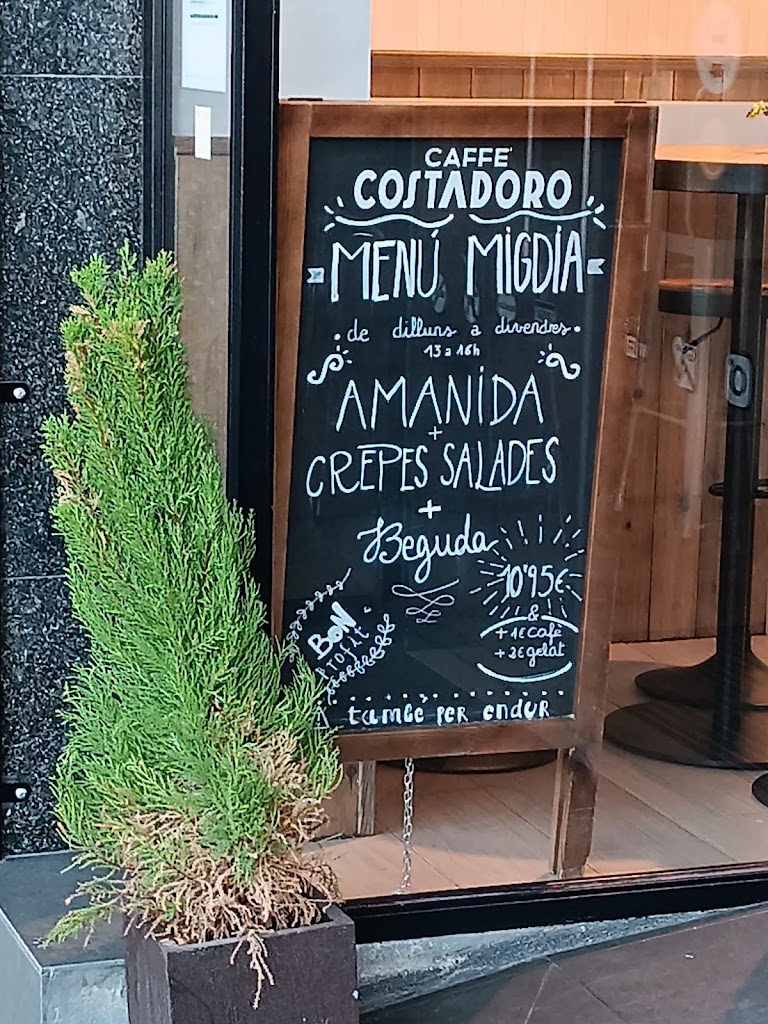 CAFFÈ
COSTADORO
MENÚ MIGDIA
de dilluns a divendres
13 a 16h
AMANIDA
+
CREPES SALADES
+
Beguda
10'95€
&
+1€ café
+2€ gelat
BON
PROFIT
també per endur